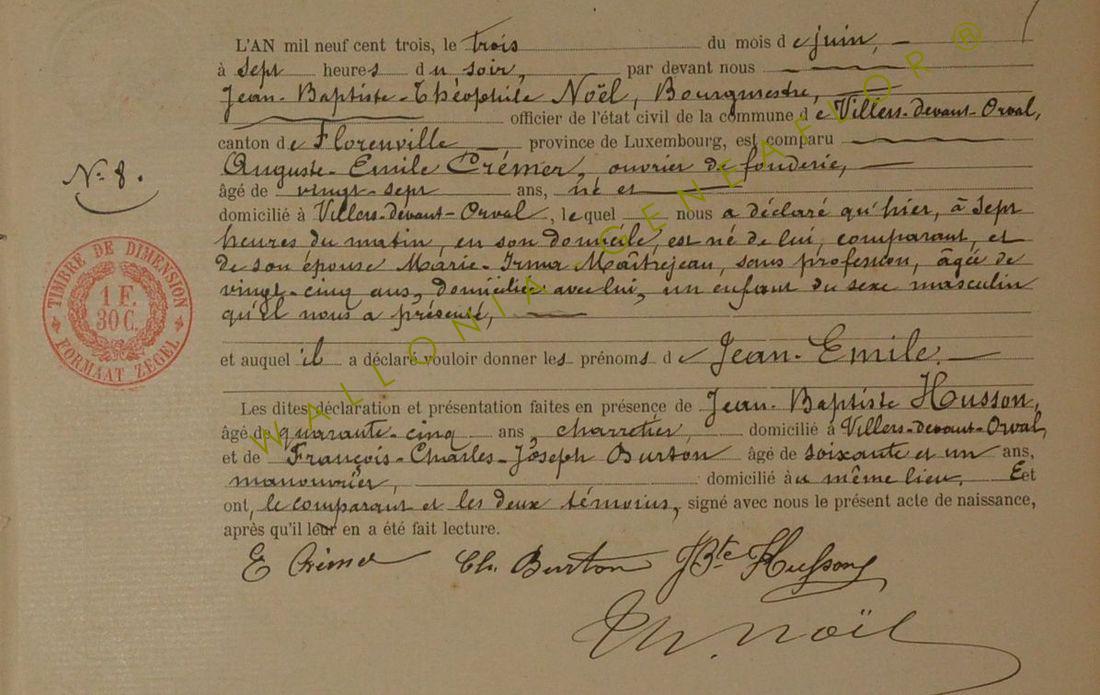 L'AN mil neuf cent trois, le trois du mois de juin,
à sept heures du soir, par devant nous
Jean-Baptiste-Théophile Noël, Bourgmestre,
officier de l'état civil de la commune de Villers-Devant-Orval,
canton de Florenville, province de Luxembourg, est comparu
Auguste-Emile Crémer, ouvrier de fonderie,
N° 8.
âgé de vingt-sept ans, né et
domicilié à Villers-Devant-Orval, lequel nous a déclaré qu'hier, à sept
heures du matin, en son domicile, est né de lui, comparant, et
de son épouse Marie-Irma Maîtrejean, sans profession, âgée de
vingt-cinq ans, domiciliée avec lui, un enfant du sexe masculin
qu'il nous a présenté,
TIMBRE DE DIMENSION
1 F.
30 C.
FORMAAT ZEGEL
et auquel il a déclaré vouloir donner les prénoms de Jean-Emile.
Les dites déclaration et présentation faites en présence de Jean-Baptiste Husson,
âgé de quarante-cinq ans, charretier, domicilié à Villers-devant-Orval,
et de François-Charles-Joseph Burton âgé de soixante et un ans,
manouvrier, domicilié au même lieu, Eet
ont, le comparant et les deux témoins, signé avec nous le présent acte de naissance,
après qu'il leur en a été fait lecture.
E Crémer Ch. Burton JBte Husson
Th. Noël
WALLONIX.GENEAFLOR ®